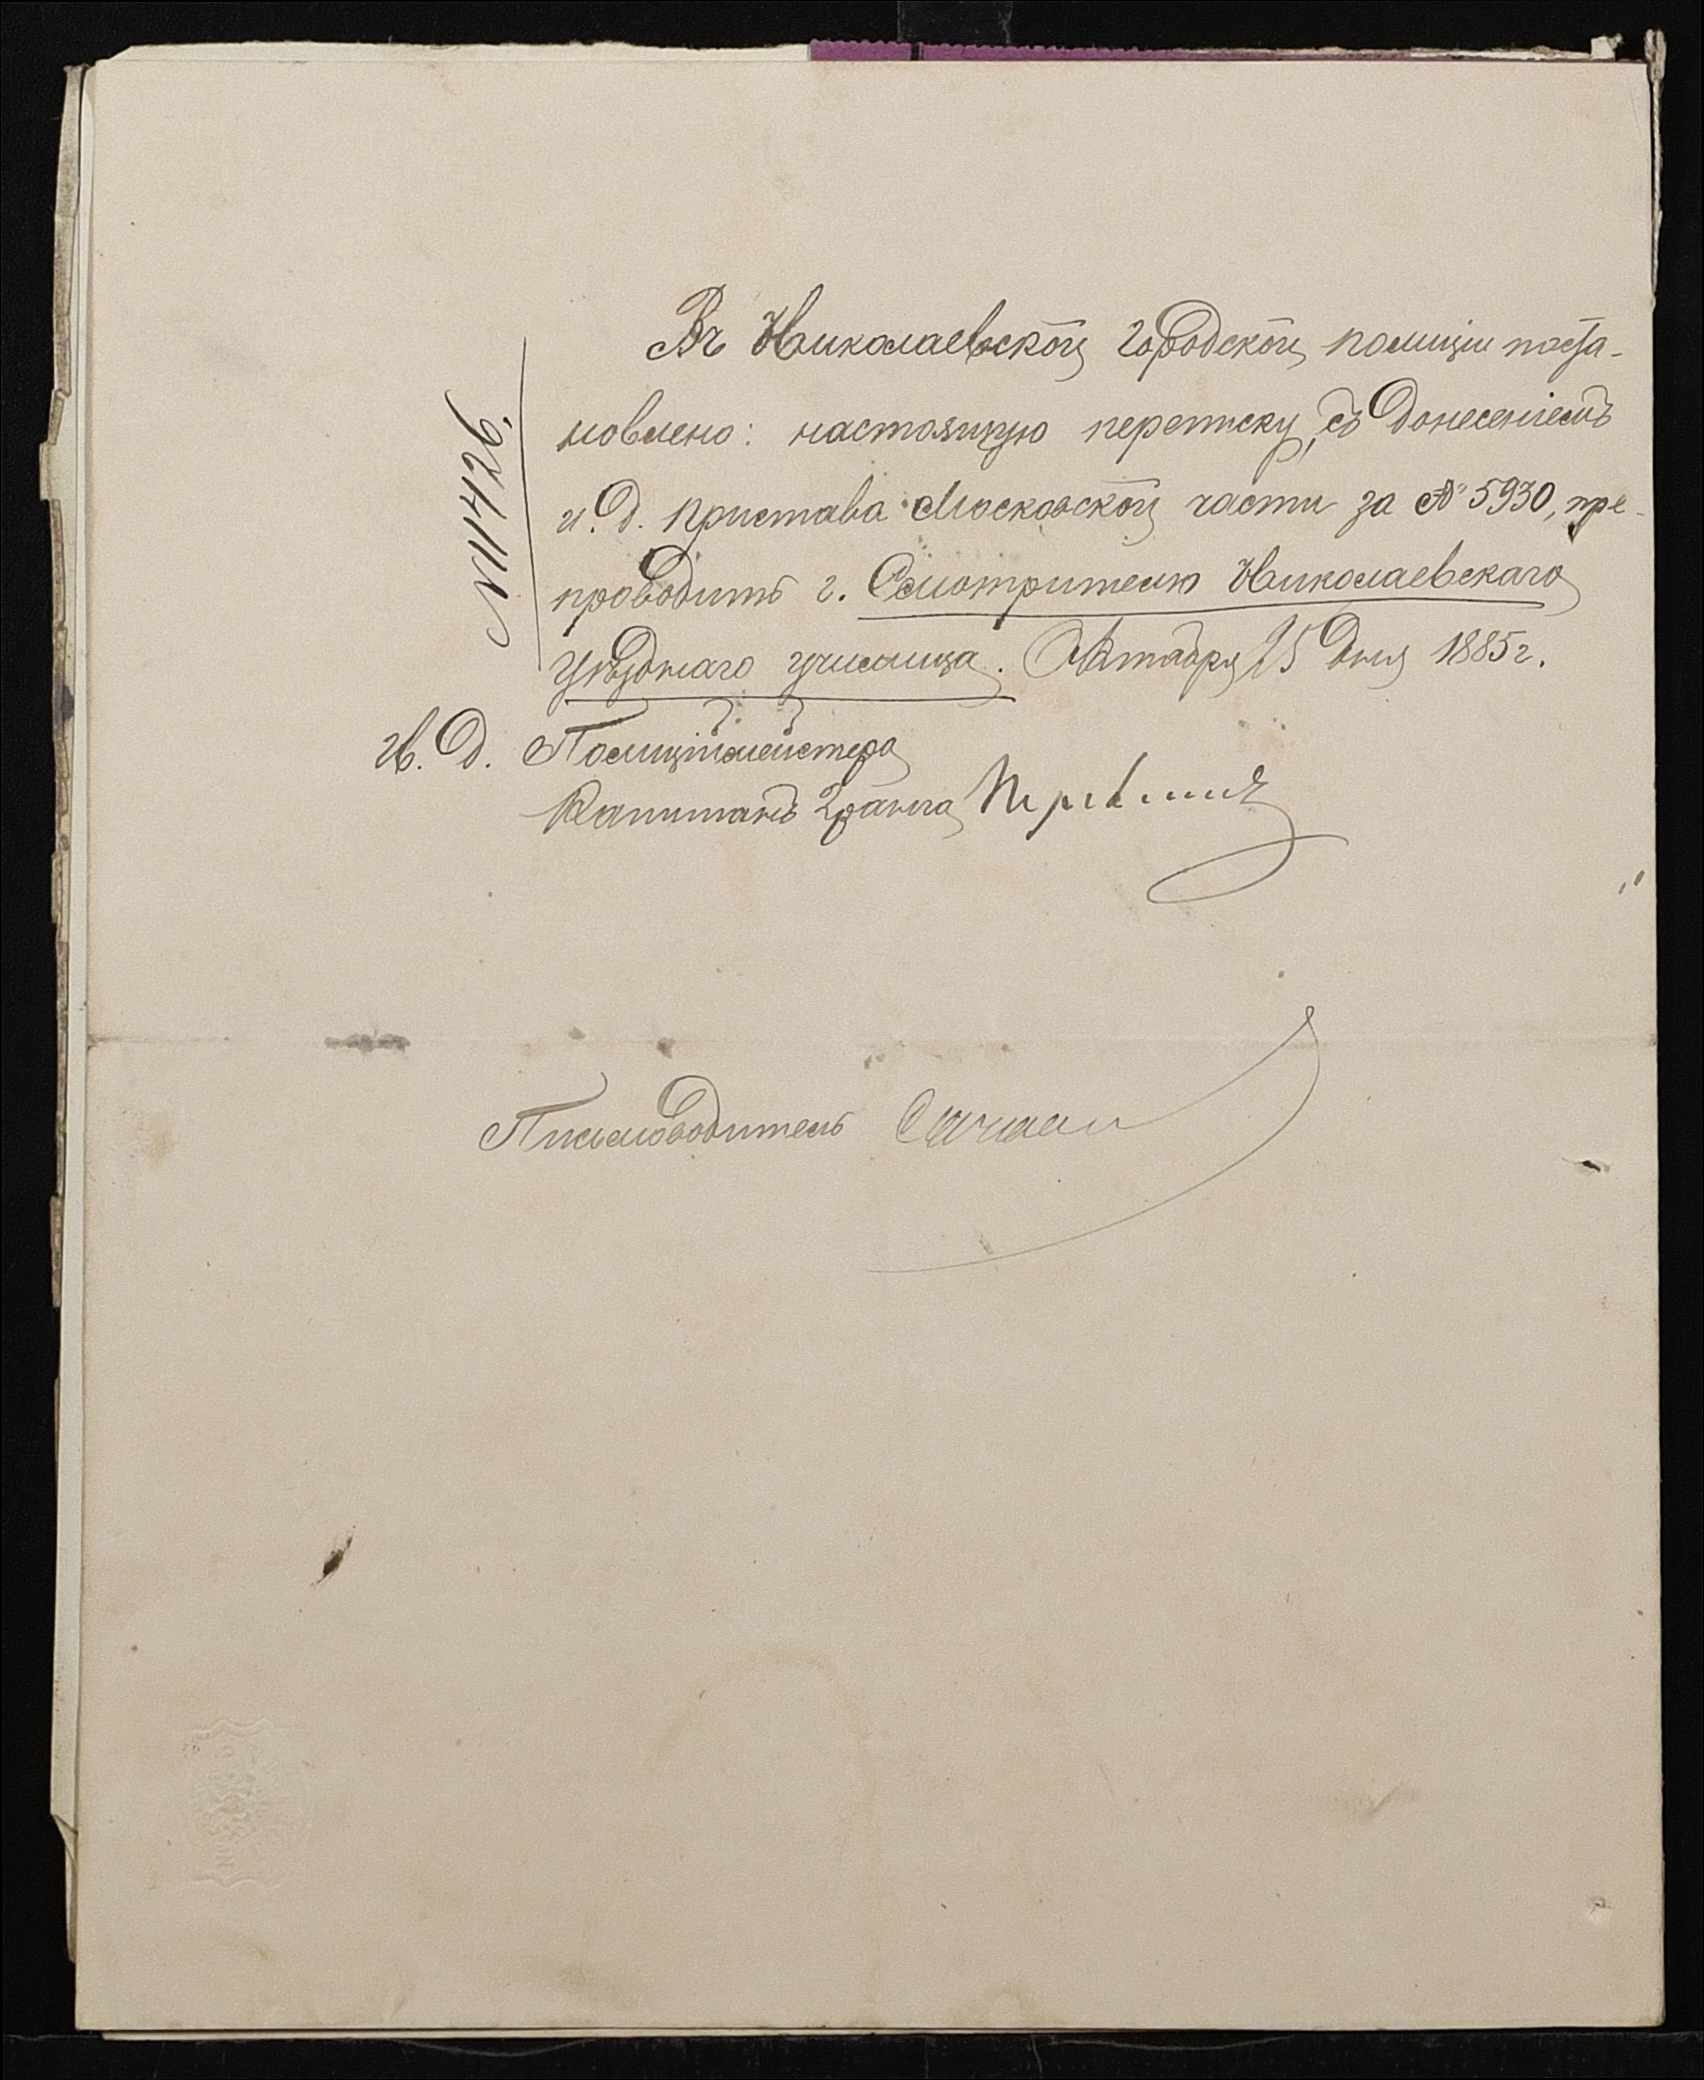 Въ Николаевской городской полиціи поста-
новлено: настоящую переписку, съ донесеніемъ
и. д. пристава Московской части за № 5930, пре-
проводить г. Смотрителю Николаевскаго
уѣзднаго училища. Октября 25 дня 1885 г.
№ 11426.
И. Д. Полиціймейстера
Капитанъ 2 ранга
Письмоводитель